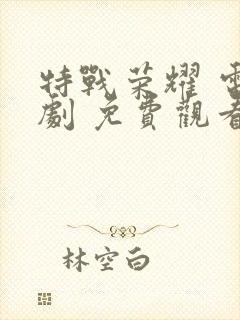 特戰荣耀 電
劇 免費觀看
林空白